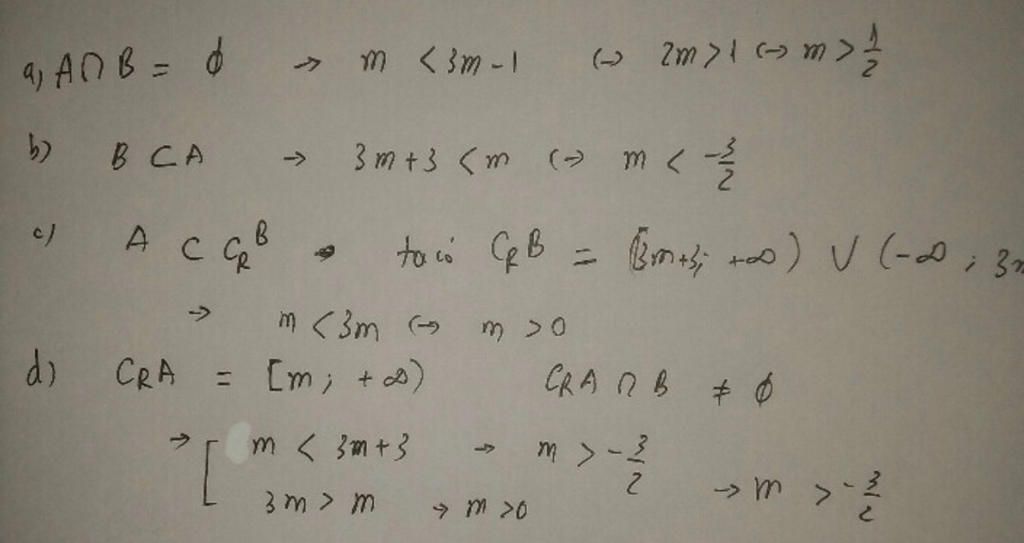 a) A ∩ B = ∅ → m < 3m - 1 ↔ 2m > 1 ↔ m > 1/2
b) B ⊂ A → 3m + 3 < m ↔ m < -3/2
c) A ⊂ C_R^B • ta có C_R B = [3m+3; +∞) ∪ (-∞; 3m
→ m < 3m ↔ m > 0
d) C_R A = [m; +∞) C_R A ∩ B ≠ ∅
→ [ m < 3m + 3 → m > -3/2
3m > m → m > 0 → m > -3/2